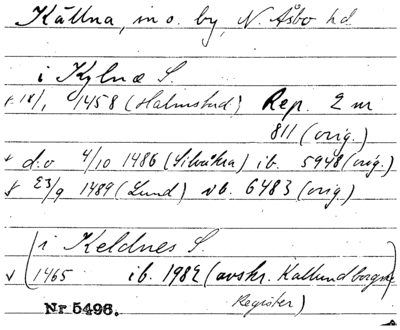 Källna, in o. by, N. Åsbo hd.
i Kylnæ S.
18/1 1458 (Halmstad) Rep. 2 nr
811 (orig.)
d:o 4/10 1486 (Silvåkra) ib. 5948 (orig.)
23/9 1489 (Lund) ib. 6483 (orig)
(i Keldnes S.
1465 ib. 1982 (avskr. Kallundborgs
Register)
Nr 5496.